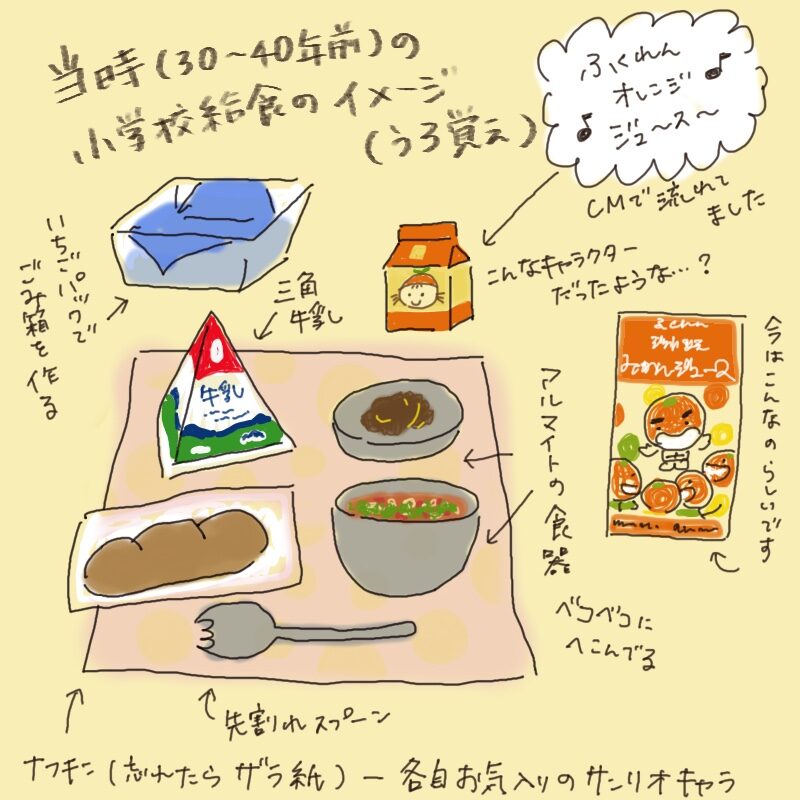 当時(30〜40年前)の
小学校給食のイメージ
(うろ覚え)
ふくれん
オレンジ
ジュ〜ス〜
CMで流れて
ました
いちごパックで
ごみ箱を作る
三角
牛乳
こんなキャラクター
だったような…?
牛乳
アルマイトの食器
ベコベコに
へこんでる
みかんジュース
今はこんなのらしいです
先割れスプーン
ナフキン(忘れたらザラ紙)ー各自お気入りのサンリオキャラ